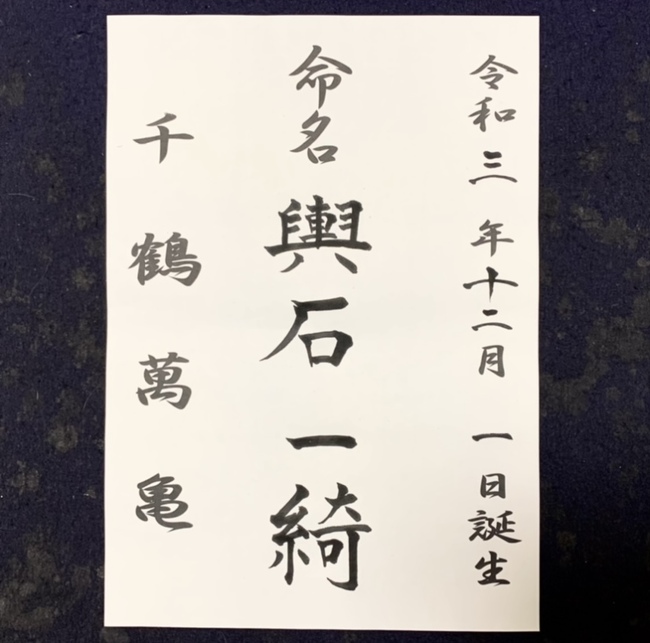 令和三年十二月一日誕生
命名 輿石一綺
千鶴萬亀